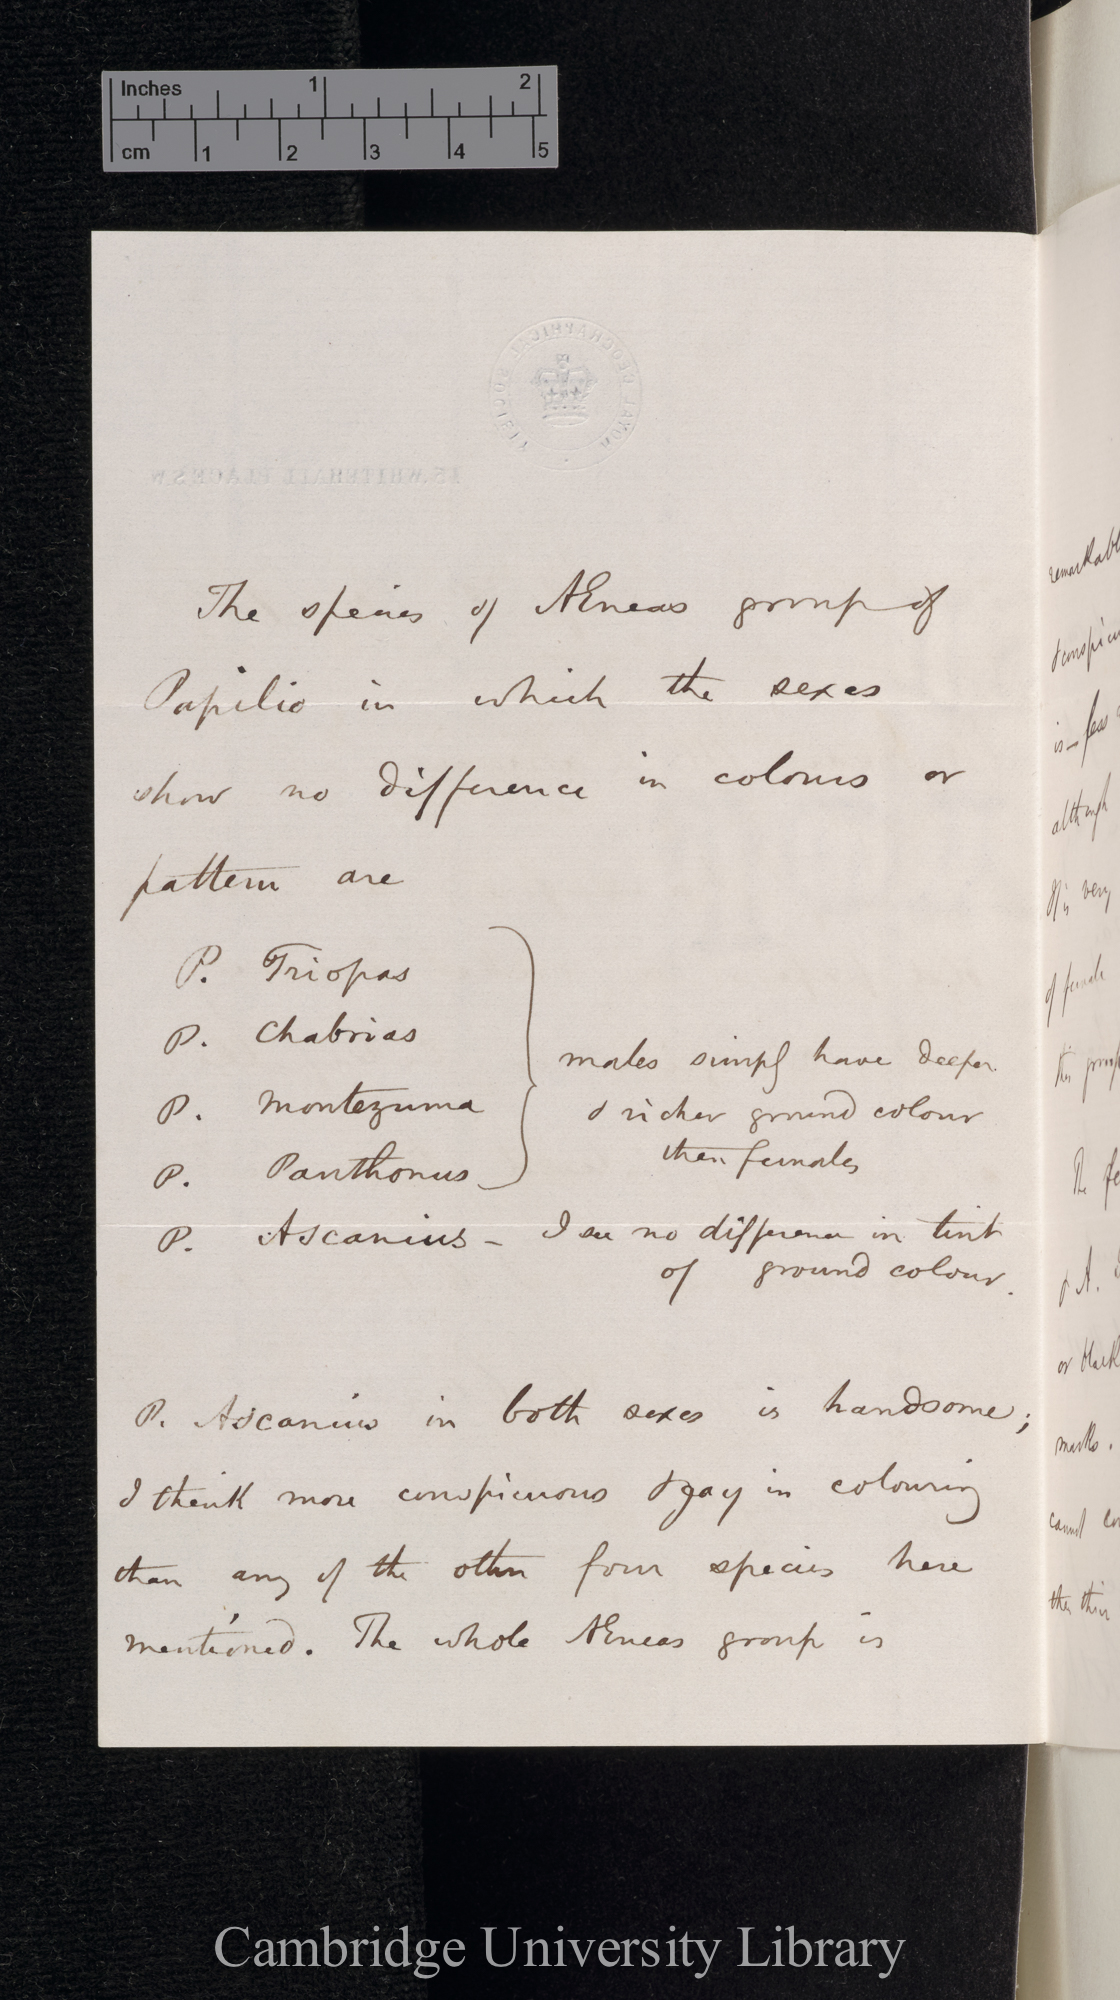 Inches 1 2
cm 1 2 3 4 5
ROYAL GEOGRAPHICAL SOCIETY
15, WHITEHALL PLACE S W
The species of Æneas group of
Papilio in which the sexes
show no difference in colours or
pattern are
P. Triopas
P. Chabrias
males simply have deeper
P. Montezuma
& richer ground colour
than females
P. Panthonus
P. Ascanius – I see no difference in tint
of ground colour.
P. Ascanius in both sexes is handsome;
I think more conspicuous & gay in colouring
than any of the other four species here
mentioned. The whole Æneas group is
remarkabl
& conspicu
is – few
although
It is very
of female
this group
The fe
& A.
or black
marks.
cannot
than their
Cambridge University Library